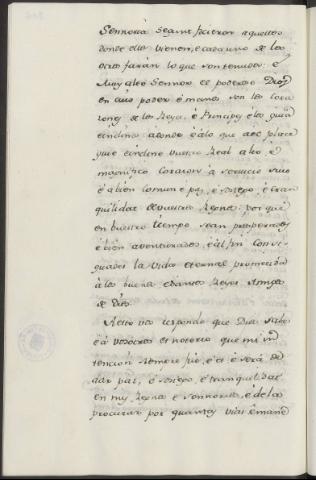 Sennoria se ant ficieron aquellos
donde ellos vienen, e cada uno de los
otros farán lo que son tenudos: é
Muy alto Sennor el poderoso Dios,
en cuio poder é manos son los cora
zones de los Reyes, é Principes é los guia
é inclina adonde é a lo que a el place
guie é incline vuestro Real alto é
magnifico corazon a servicio suio
é a bien comun é paz, é sosego, é tran
quilidat de vuestros Regnos: por que
en vuestro tiempo sean prosperados,
é bien aventurados, é al fin consi-
guades la vida eternal prometida
á los buenos é Santos Reyes Amigos
de Dios.
A esto vos respondo que Dios sabe
é á vosotros es notorio que mi in
tencion siempre fue, é es é será de
dar paz, é sosego, é tranquilidat
en mis Regnos é Sennorios, é de la
procurar por quantas vias é mane